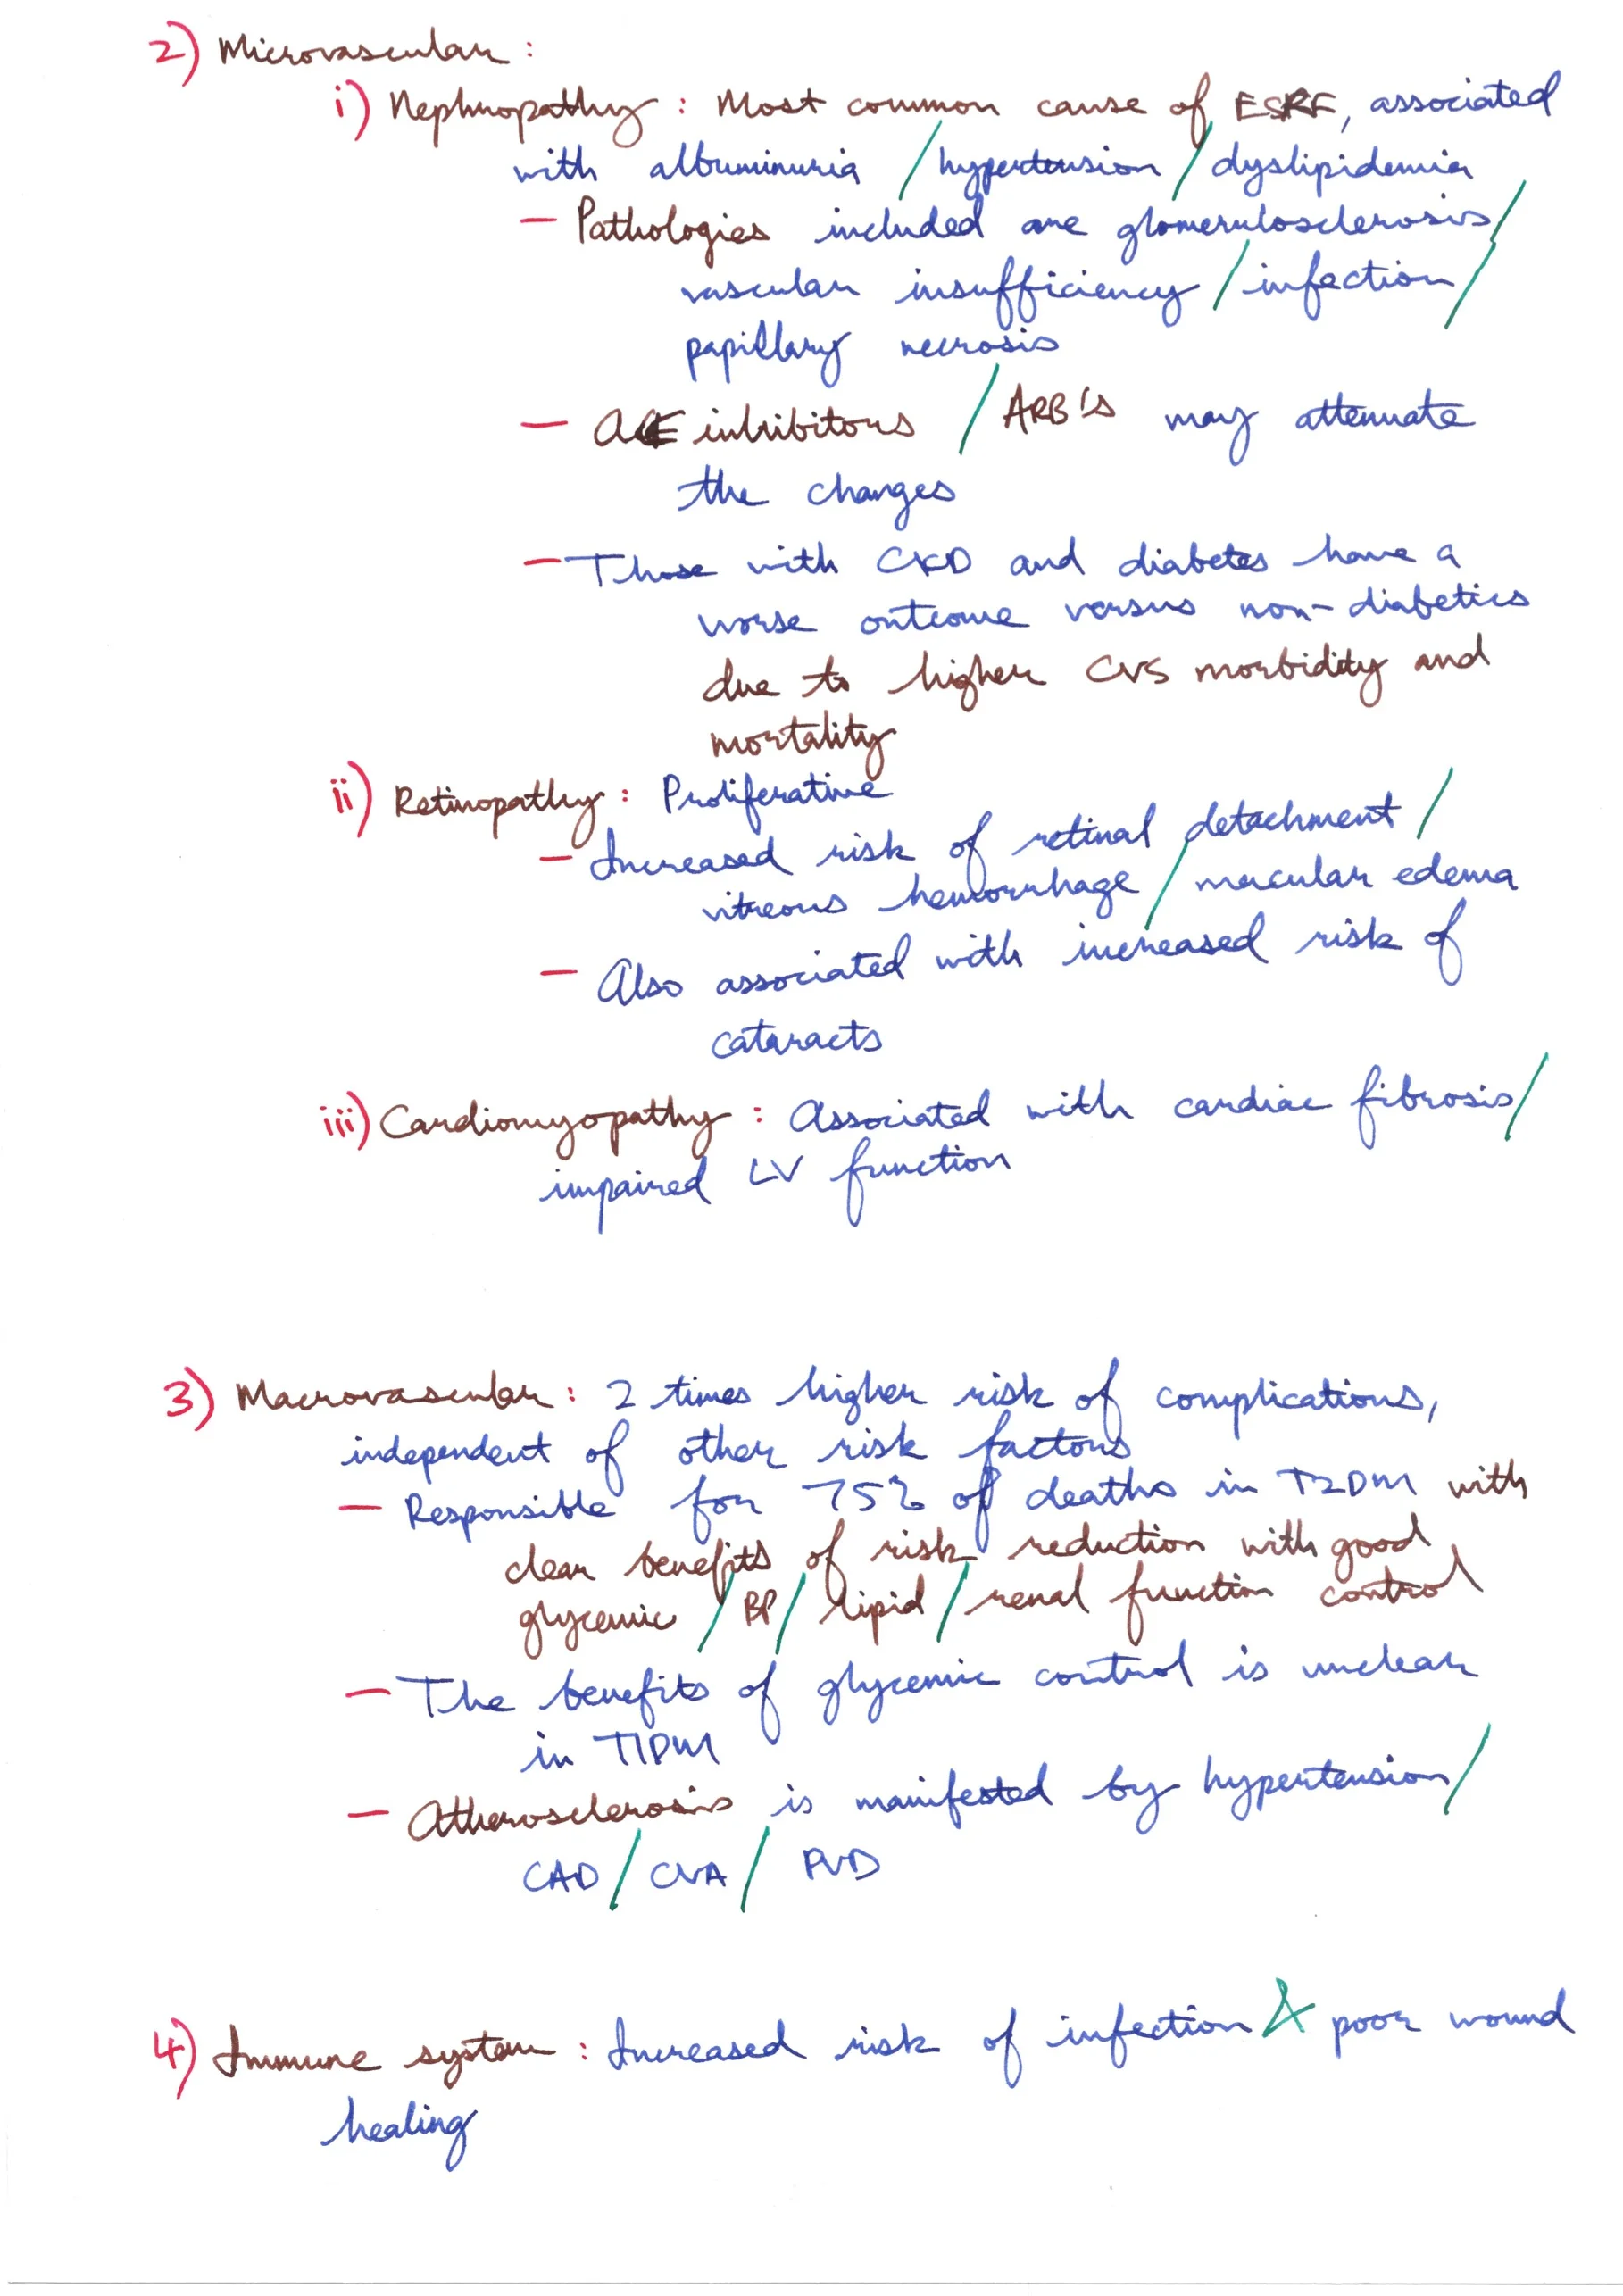 2) Microvascular :
i) Nephropathy : Most common cause of ESRF, associated
with albuminuria / hypertension / dyslipidemia
— Pathologies included are glomerulosclerosis /
vascular insufficiency / infection /
papillary necrosis
— ACE inhibitors / ARB's may attenuate
the changes
— Those with CKD and diabetes have a
worse outcome versus non-diabetics
due to higher CVS morbidity and
mortality
ii) Retinopathy : Proliferative
— Increased risk of retinal detachment /
vitreous hemorrhage / macular edema
— Also associated with increased risk of
cataracts
iii) Cardiomyopathy : Associated with cardiac fibrosis /
impaired LV function
3) Macrovascular : 2 times higher risk of complications,
independent of other risk factors
— Responsible for 75% of deaths in T2DM with
clear benefits of risk reduction with good
glycemic / BP / lipid / renal function control
— The benefits of glycemic control is unclear
in T1DM
— Atherosclerosis is manifested by hypertension /
CAD / CVA / PVD
4) Immune system : Increased risk of infection & poor wound
healing